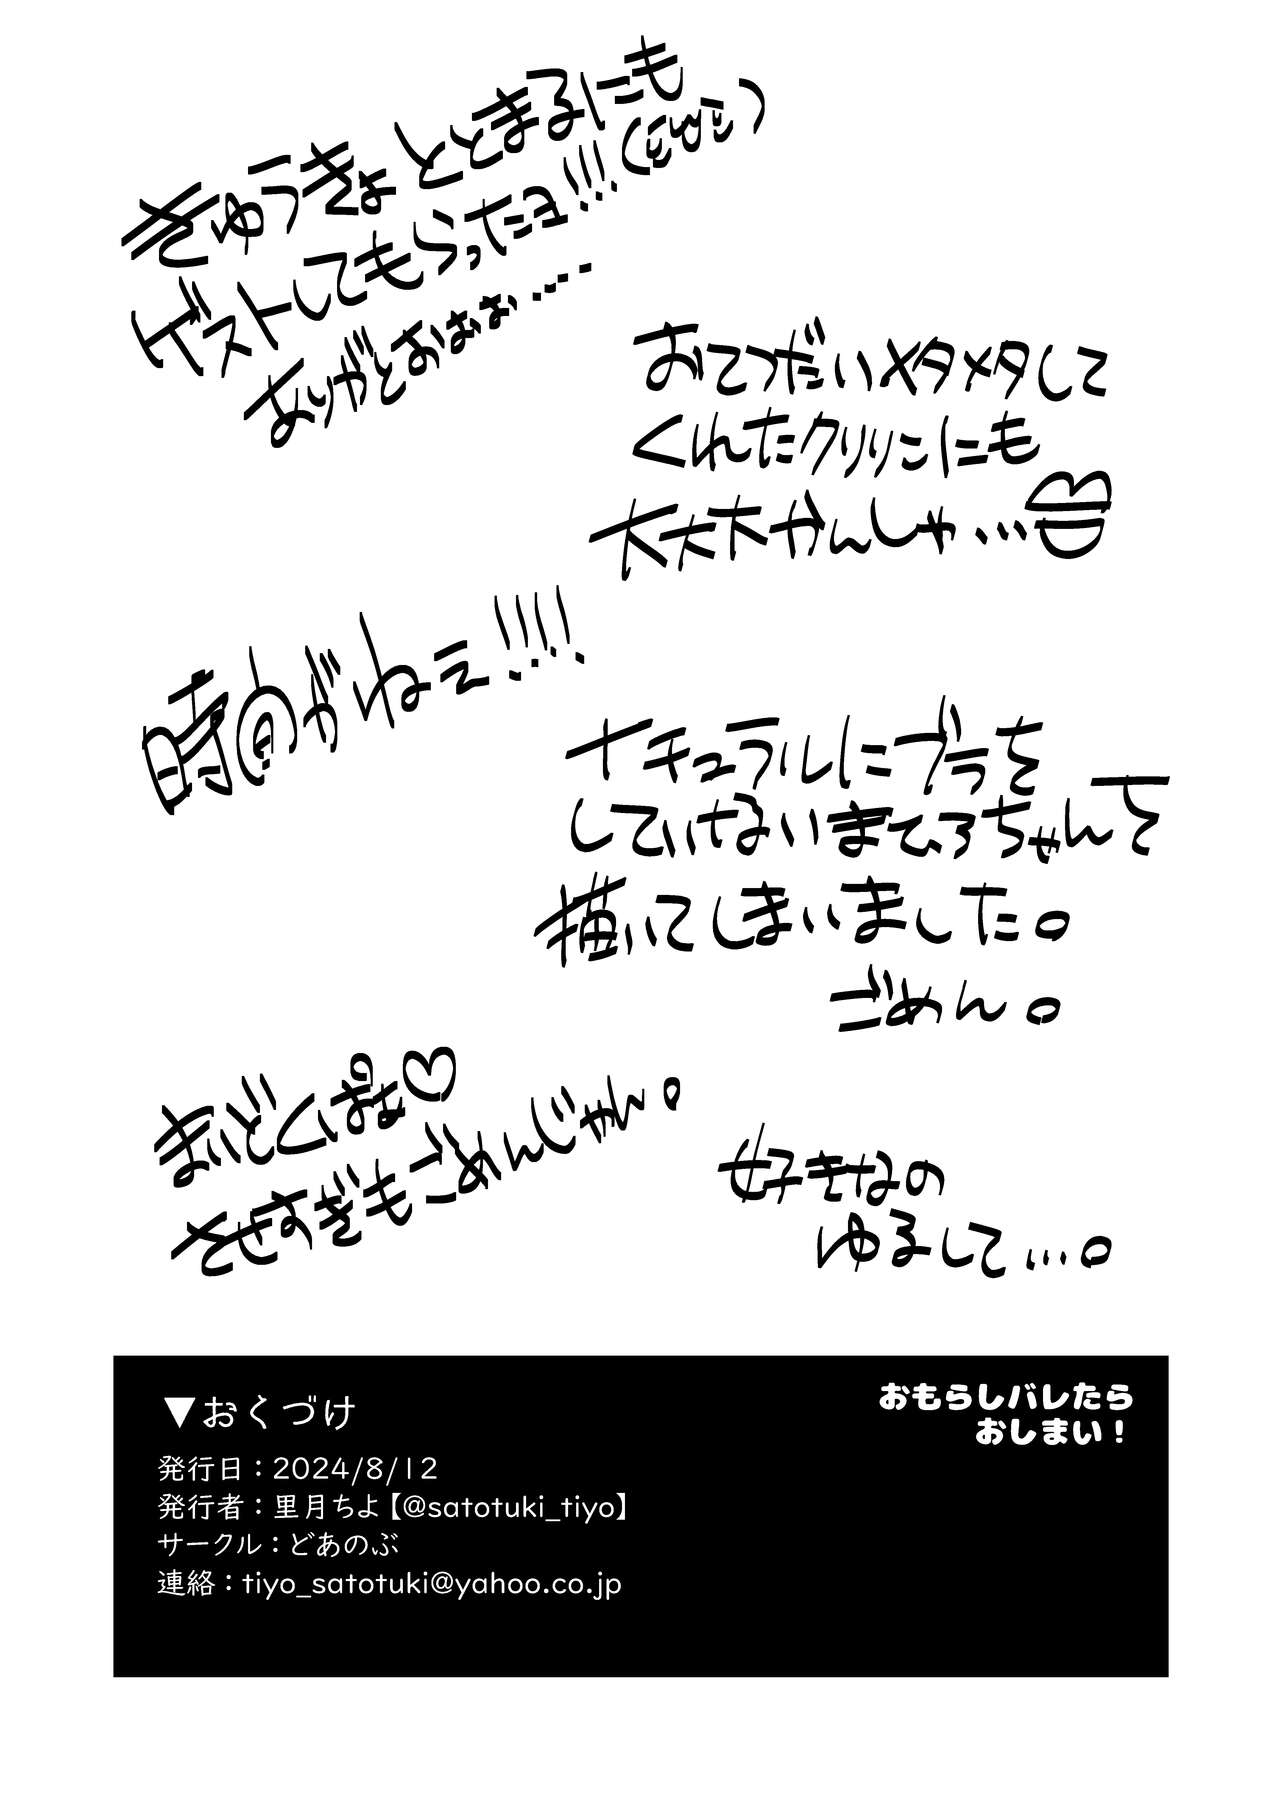 きゅうきょ ととまるにも
ゲストしてもらったョ!!!
ありがとおぉぉぉ....
おてつだいメタメタして
くれたクリリンにも
大大大かんしゃ…
時間がねェ!!!!
ナチュラルにブラを
していけないまひろちゃんを
描いてしまいました。
ごめん。
まいどくぱぁ♡
させすぎもごめんじゃん。
好きなの
ゆるして…。
おもらしバレたら
おしまい！
▼おくづけ
発行日：2024/8/12
発行者：里月ちよ【@satotuki_tiyo】
サークル：どあのぶ
連絡：tiyo_satotuki@yahoo.co.jp